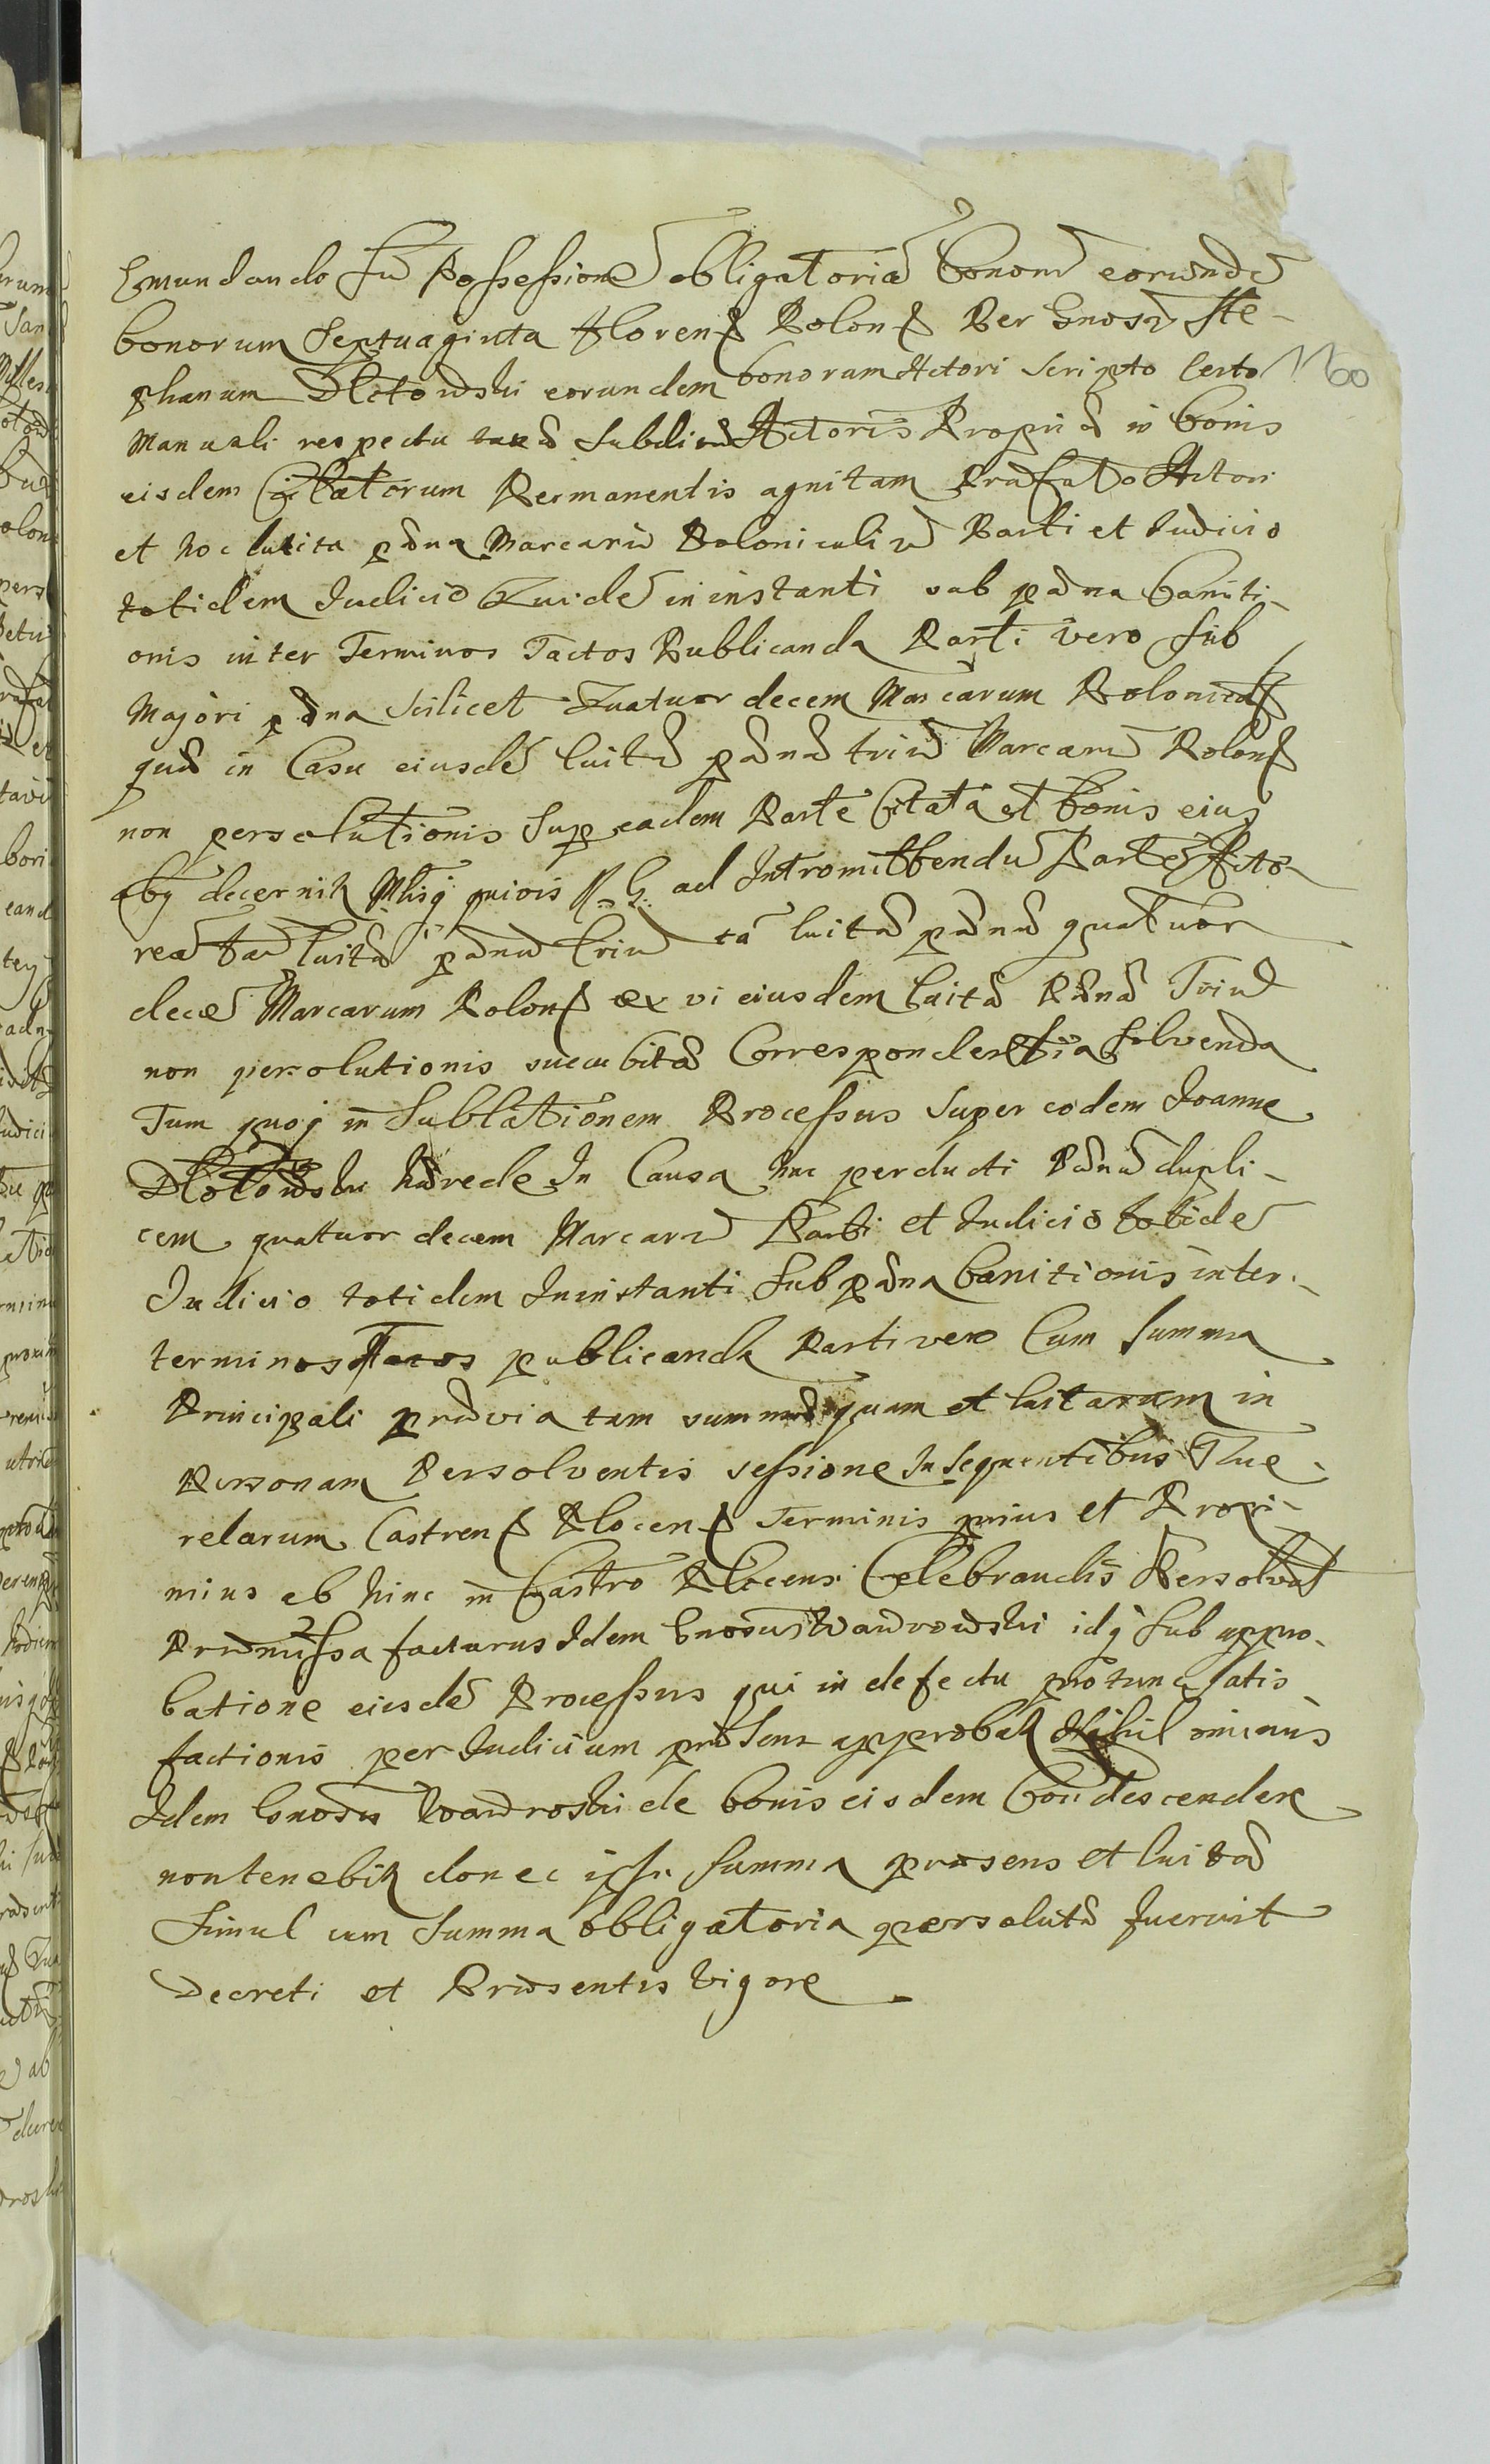 Emundando In Possessione obligatoria bonorum eorunde
bonorum Septuaginta Floren Polon Per Gnosum Ste-
phanum Dlotowski eorundem bonorum Actori scripto Certo
1160
Manuali respectu subdi Actoris Proprie in bonis
eisdem Citatorum Permanentis agnitam Præfato Actori
et hoc luita pæna Marcarum Polonicaliu Parti et Iudicio
totidem Iudicio Quide in instanti sub pæna baniti-
onis inter Terminos Tactos Publicanda Parti vero sub
Majori pæna scilicet Quatuor decem Marcarum Polonical
quæ in Casu eiusde luitæ pænæ triu Marcaru Polon
non persolutionis Sup eadem Parte Citata et bonis eius
oby decernit Mtisq quivis R. G. ad Intromittendu Parte Acto-
rea tæ luitæ pænæ triu ta luitæ pænæ quatuor
dece Marcarum Polon ex vi eiusdem luitæ Pænæ Triu
non persolutionis succubitæ Correspondentia solvenda
Tum quoq in Sublationem Processus super eodem Joanne
Dlotowski hærede In Causa hac perducti Pænæ dupli-
cem quatuor decem Marcaru Parti et Iudicio totide
Iudicio totidem Ininstanti Sub pæna banitionis inter
terminos Tactos publicanda Parti vero Cum summa
Principali prævia tam summæ quam et luitarum in
Personam Persolventis sessione Insequentibus Que-
relarum Castren Plocen Terminis prius et Proxi-
mius ab hinc in Castro Plocens Celebrandis Persolvat
Præmissa facturus Idem Gnosus Wandrowski idq sub appro-
batione eiusde Processus qui in defectu protunc satis
factionis per Iudicium præsens approbat Nihil ominus
Idem Gnosus Wandroski de bonis eisdem Condescendere
non tenebit donec ipsa summa præsens et luitæ
Simul cum Summa obligatoria persolutæ fuerint
Decreti et Præsentis vigore